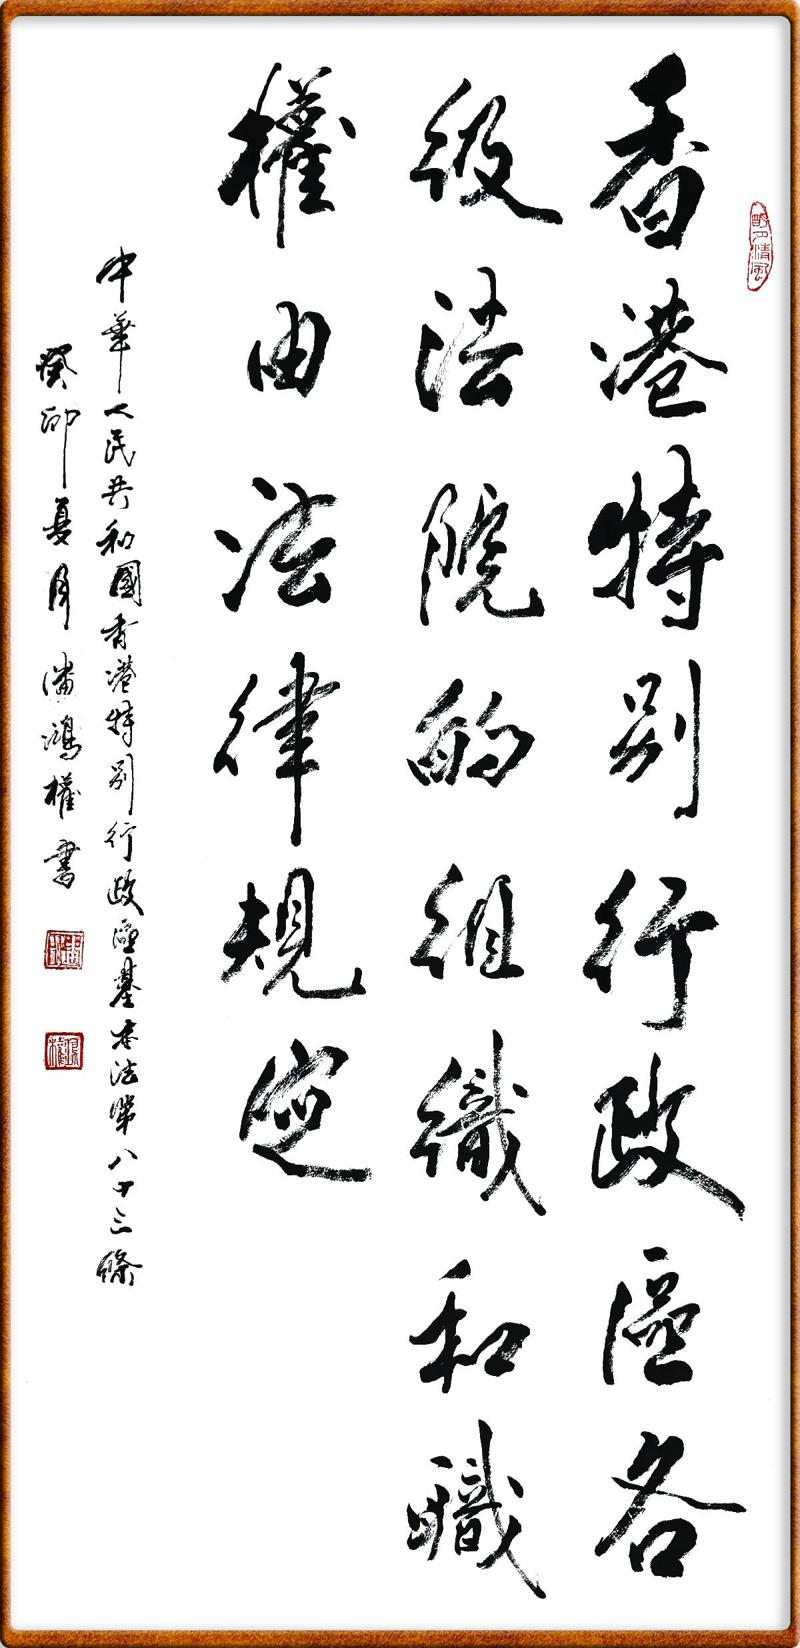 香港特別行政區各
級法院的組織和職
權由法律規定
中華人民共和國香港特別行政區基本法第八十三條
癸卯夏月潘鴻權書